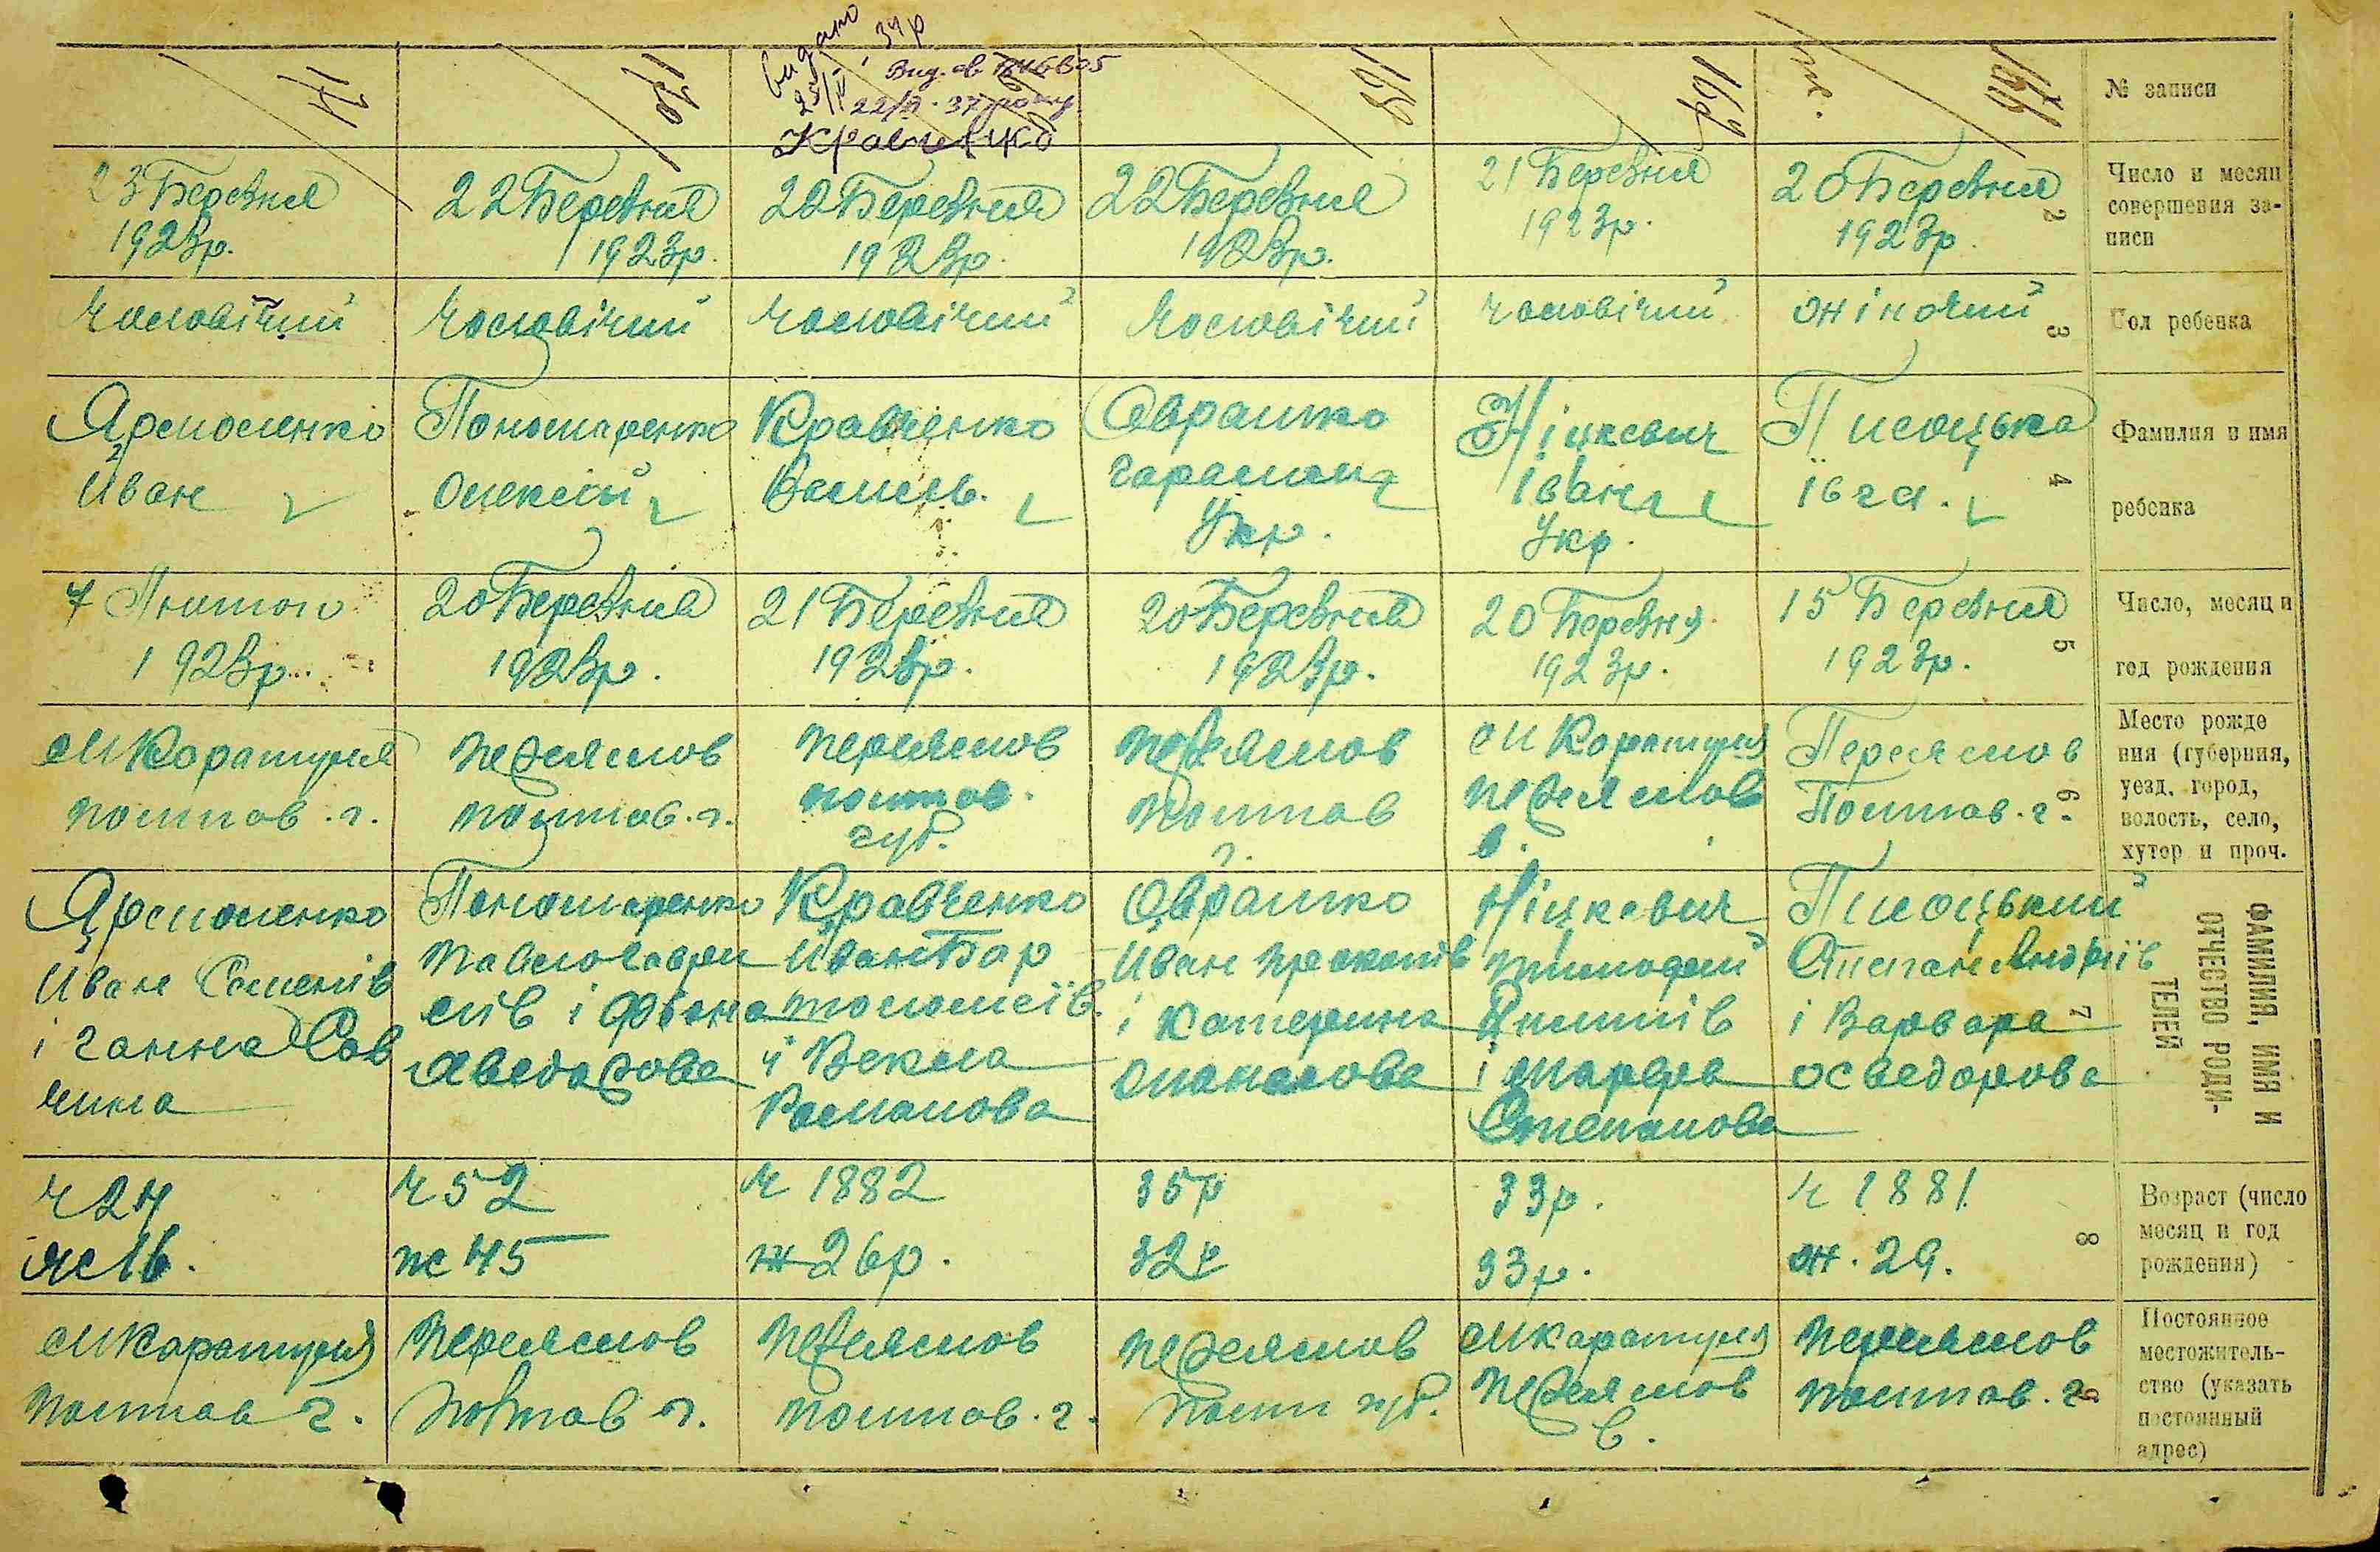 171
170
видано
34р
Вид. св
22/
37 року
Кравченко
168
167
ж.
166
№ записи
23 Березня
1923р.
22 Березня
1923р.
22 Березня
1923р.
22 Березня
1923р.
21 Березня
1923р.
20 Березня
1923р.
Число и месяц
совершения за-
писи
2
Чоловічий
Чоловічий
Чоловічий
Чоловічий
Чоловічий
жіночий
3
Пол ребенка
Ярмоленко
Иван
Пономаренко
Олексій
Кравченко
Василь.
Аврашко
Укр.
Ніцкевич
Іван
Укр.
Писоцька
Івга.
4
Фамилия и имя
ребенка
7 Лютого
1923р.
20 Березня
1923р.
21 Березня
1923р.
20 Березня
1923р.
20 Березня
1923р.
15 Березня
1923р.
5
Число, месяц и
год рождения
м Каратуля
полтав. г.
переяслов
полтав. г.
переяслов
полтав.
губ.
переяслов
Полтав
г.
м Каратуля
переяслов
в.
Переяслов
Полтав. г.
6
Место рожде
ния (губерния,
уезд, город,
волость, село,
хутор и проч.
Ярмоленко
Иван Семенів
і Ганна Сав
чина
Пономаренко
Павло Гаври
лів і
Кравченко
Иван Вар
толомеїв
й Векла
Романова
Аврашко
Иван Прокопів
і Катерина
Ніцкевич
тимофей
Пилипів
і Марфа
Степанова
Писоцький
Степан Андріїв
і Варвара
Хведорова
7
ФАМИЛИЯ, ИМЯ И
ОТЧЕСТВО РОДИ-
ТЕЛЕЙ
ч 24
ч 52
ж 45
ч 1882
ж 26р.
35р
32р
33р.
33р.
ч 1881
ж. 29.
8
Возраст (число
месяц и год
рождения)
м Каратуля
Полтав г.
Переяслов
Полтав г.
Переяслов
Полтав. г.
переяслов
Полт губ.
м Каратуля
переяслов
в.
переяслов
Полтав. г.
9
Постоянное
местожитель-
ство (указать
постоянный
адрес)